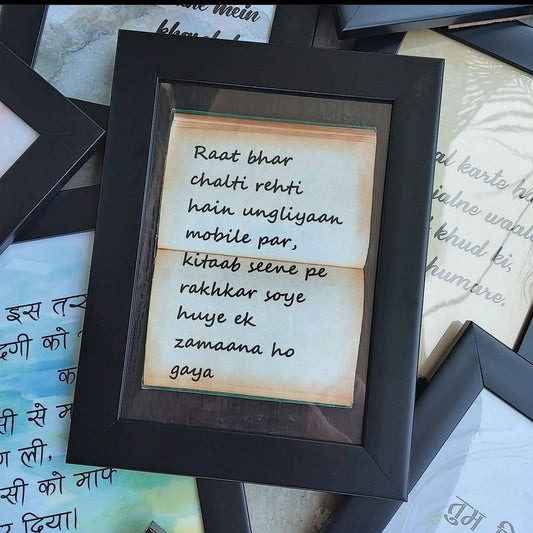 Raat bhar
chalti rehti
hain ungliyaan
mobile par,
kitaab seene pe
rakhkar soye
huye ek
zamaana ho
gaya
mein
karte
khud ki,
humare.
इस
को
सी से
ली,
सी को माफ
दिया।
तुम